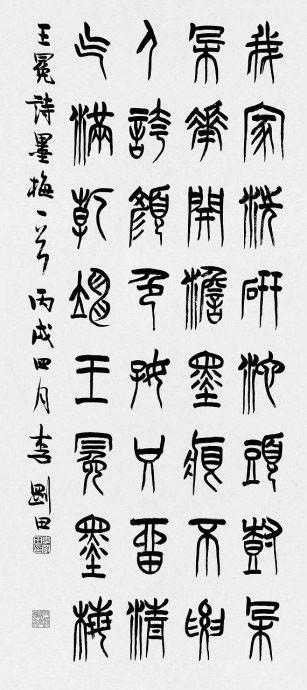 我家洗研池頭樹朵
朵華開澹墨痕不要
人誇顏色好只留清
气滿乾坤王冕墨梅
王冕詩墨梅一首丙戌四月李剛田